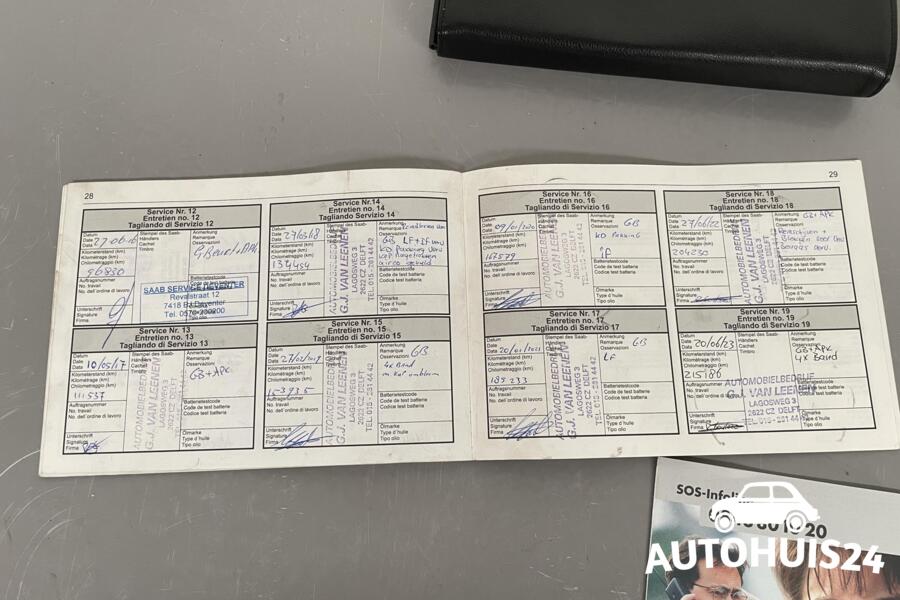 28
Service Nr. 12
Entretien no. 12
Tagliando di Servizio 12
Datum
Date 27-06-16
Kilometerstand (km)
Kilométrage (km)
Chilometraggio (km)
96830
Auftragsnummer
No. travail
No. dell'ordine di lavoro
Unterschrift
Signature
Firma
Stempel des Saab-
Händlers
Cachet
Timbro
Anmerkung
Remarque
Osservazioni
GBeurt + APK
SAAB SERVICE DEVENTER
Revalstraat 12
7418 BJ Deventer
Tel. 0570-200200
Service Nr. 13
Entretien no. 13
Tagliando di Servizio 13
Datum
Date 10/05/17
Kilometerstand (km)
Kilométrage (km)
Chilometraggio (km)
111557
Auftragsnummer
No. travail
No. dell'ordine di lavoro
Unterschrift
Signature
Firma
Stempel des Saab-
Händlers
Cachet
Timbro
AUTOMOBIELBEDRIJF
G.J. VAN LEENEN
LAGOSWEG 3
2622 CZ DELFT
Anmerkung
Remarque
Osservazioni
GB + APK
Batterietestcode
Code de test batterie
Codice di test batteria
Ölmarke
Type d'huile
Tipo olio
Service Nr. 14
Entretien no. 14
Tagliando di Servizio 14
Datum
Date 27/03/18
Kilometerstand (km)
Kilométrage (km)
Chilometraggio (km)
134454
Auftragsnummer
No. travail
No. dell'ordine di lavoro
Unterschrift
Signature
Firma
AUTOMOBIELBEDRIJF
G.J. VAN LEENEN
LAGOSWEG 3
2622 CZ DELFT
TEL. 015 - 251 44 42
Anmerkung
Remarque
Osservazioni
GB LF + IF
airco gevuld
Batterietestcode
Code de test batterie
Codice di test batteria
Ölmarke
Type d'huile
Tipo olio
Service Nr. 15
Entretien no. 15
Tagliando di Servizio 15
Datum
Date 27/02/2019
Kilometerstand (km)
Kilométrage (km)
Chilometraggio (km)
153935
Auftragsnummer
No. travail
No. dell'ordine di lavoro
Unterschrift
Signature
Firma
AUTOMOBIELBEDRIJF
G.J. VAN LEENEN
LAGOSWEG 3
2622 CZ DELFT
TEL. 015 - 251 44 42
Anmerkung
Remarque
Osservazioni GB
4x Band
Batterietestcode
Code de test batterie
Codice di test batteria
Ölmarke
Type d'huile
Tipo olio
29
Service Nr. 16
Entretien no. 16
Tagliando di Servizio 16
Datum
Date 09/01/2020
Kilometerstand (km)
Kilométrage (km)
Chilometraggio (km)
167579
Auftragsnummer
No. travail
No. dell'ordine di lavoro
Unterschrift
Signature
Firma
AUTOMOBIELBEDRIJF
G.J. VAN LEENEN
LAGOSWEG 3
2622 CZ DELFT
TEL. 015 - 251 44 42
Anmerkung
Remarque GB
Osservazioni
IF
Batterietestcode
Code de test batterie
Codice di test batteria
Ölmarke
Type d'huile
Tipo olio
Service Nr. 17
Entretien no. 17
Tagliando di Servizio 17
Datum
Date 20/01/2021
Kilometerstand (km)
Kilométrage (km)
Chilometraggio (km)
185233
Auftragsnummer
No. travail
No. dell'ordine di lavoro
Unterschrift
Signature
Firma
AUTOMOBIELBEDRIJF
G.J. VAN LEENEN
LAGOSWEG 3
2622 CZ DELFT
TEL. 015 - 251 44 42
Anmerkung
Remarque GB
Osservazioni
LF
Batterietestcode
Code de test batterie
Codice di test batteria
Ölmarke
Type d'huile
Tipo olio
Service Nr. 18
Entretien no. 18
Tagliando di Servizio 18
Datum
Date 27/06/22
Kilometerstand (km)
Kilométrage (km)
Chilometraggio (km)
204230
Auftragsnummer
No. travail
No. dell'ordine di lavoro
Unterschrift
Signature
Firma
AUTOMOBIELBEDRIJF
G.J. VAN LEENEN
LAGOSWEG 3
2622 CZ DELFT
Anmerkung GB + APK
Remarque
Osservazioni
Batterietestcode
Code de test batterie
Codice di test batteria
Ölmarke
Type d'huile
Tipo olio
Service Nr. 19
Entretien no. 19
Tagliando di Servizio 19
Datum
Date 20/06/23
Kilometerstand (km)
Kilométrage (km)
Chilometraggio (km)
215186
Auftragsnummer
No. travail
No. dell'ordine di lavoro
Unterschrift
Signature
Firma
Stempel des Saab-
Händlers
Cachet
Timbro
Anmerkung
Remarque
Osservazioni
GB + APK
4x Band
AUTOMOBIELBEDRIJF
G.J. VAN LEENEN
LAGOSWEG 3
2622 CZ DELFT
TEL. 015 - 251 44 42
Ölmarke
Type d'huile
Tipo olio
SOS-Infoli
AUTOHUIS24